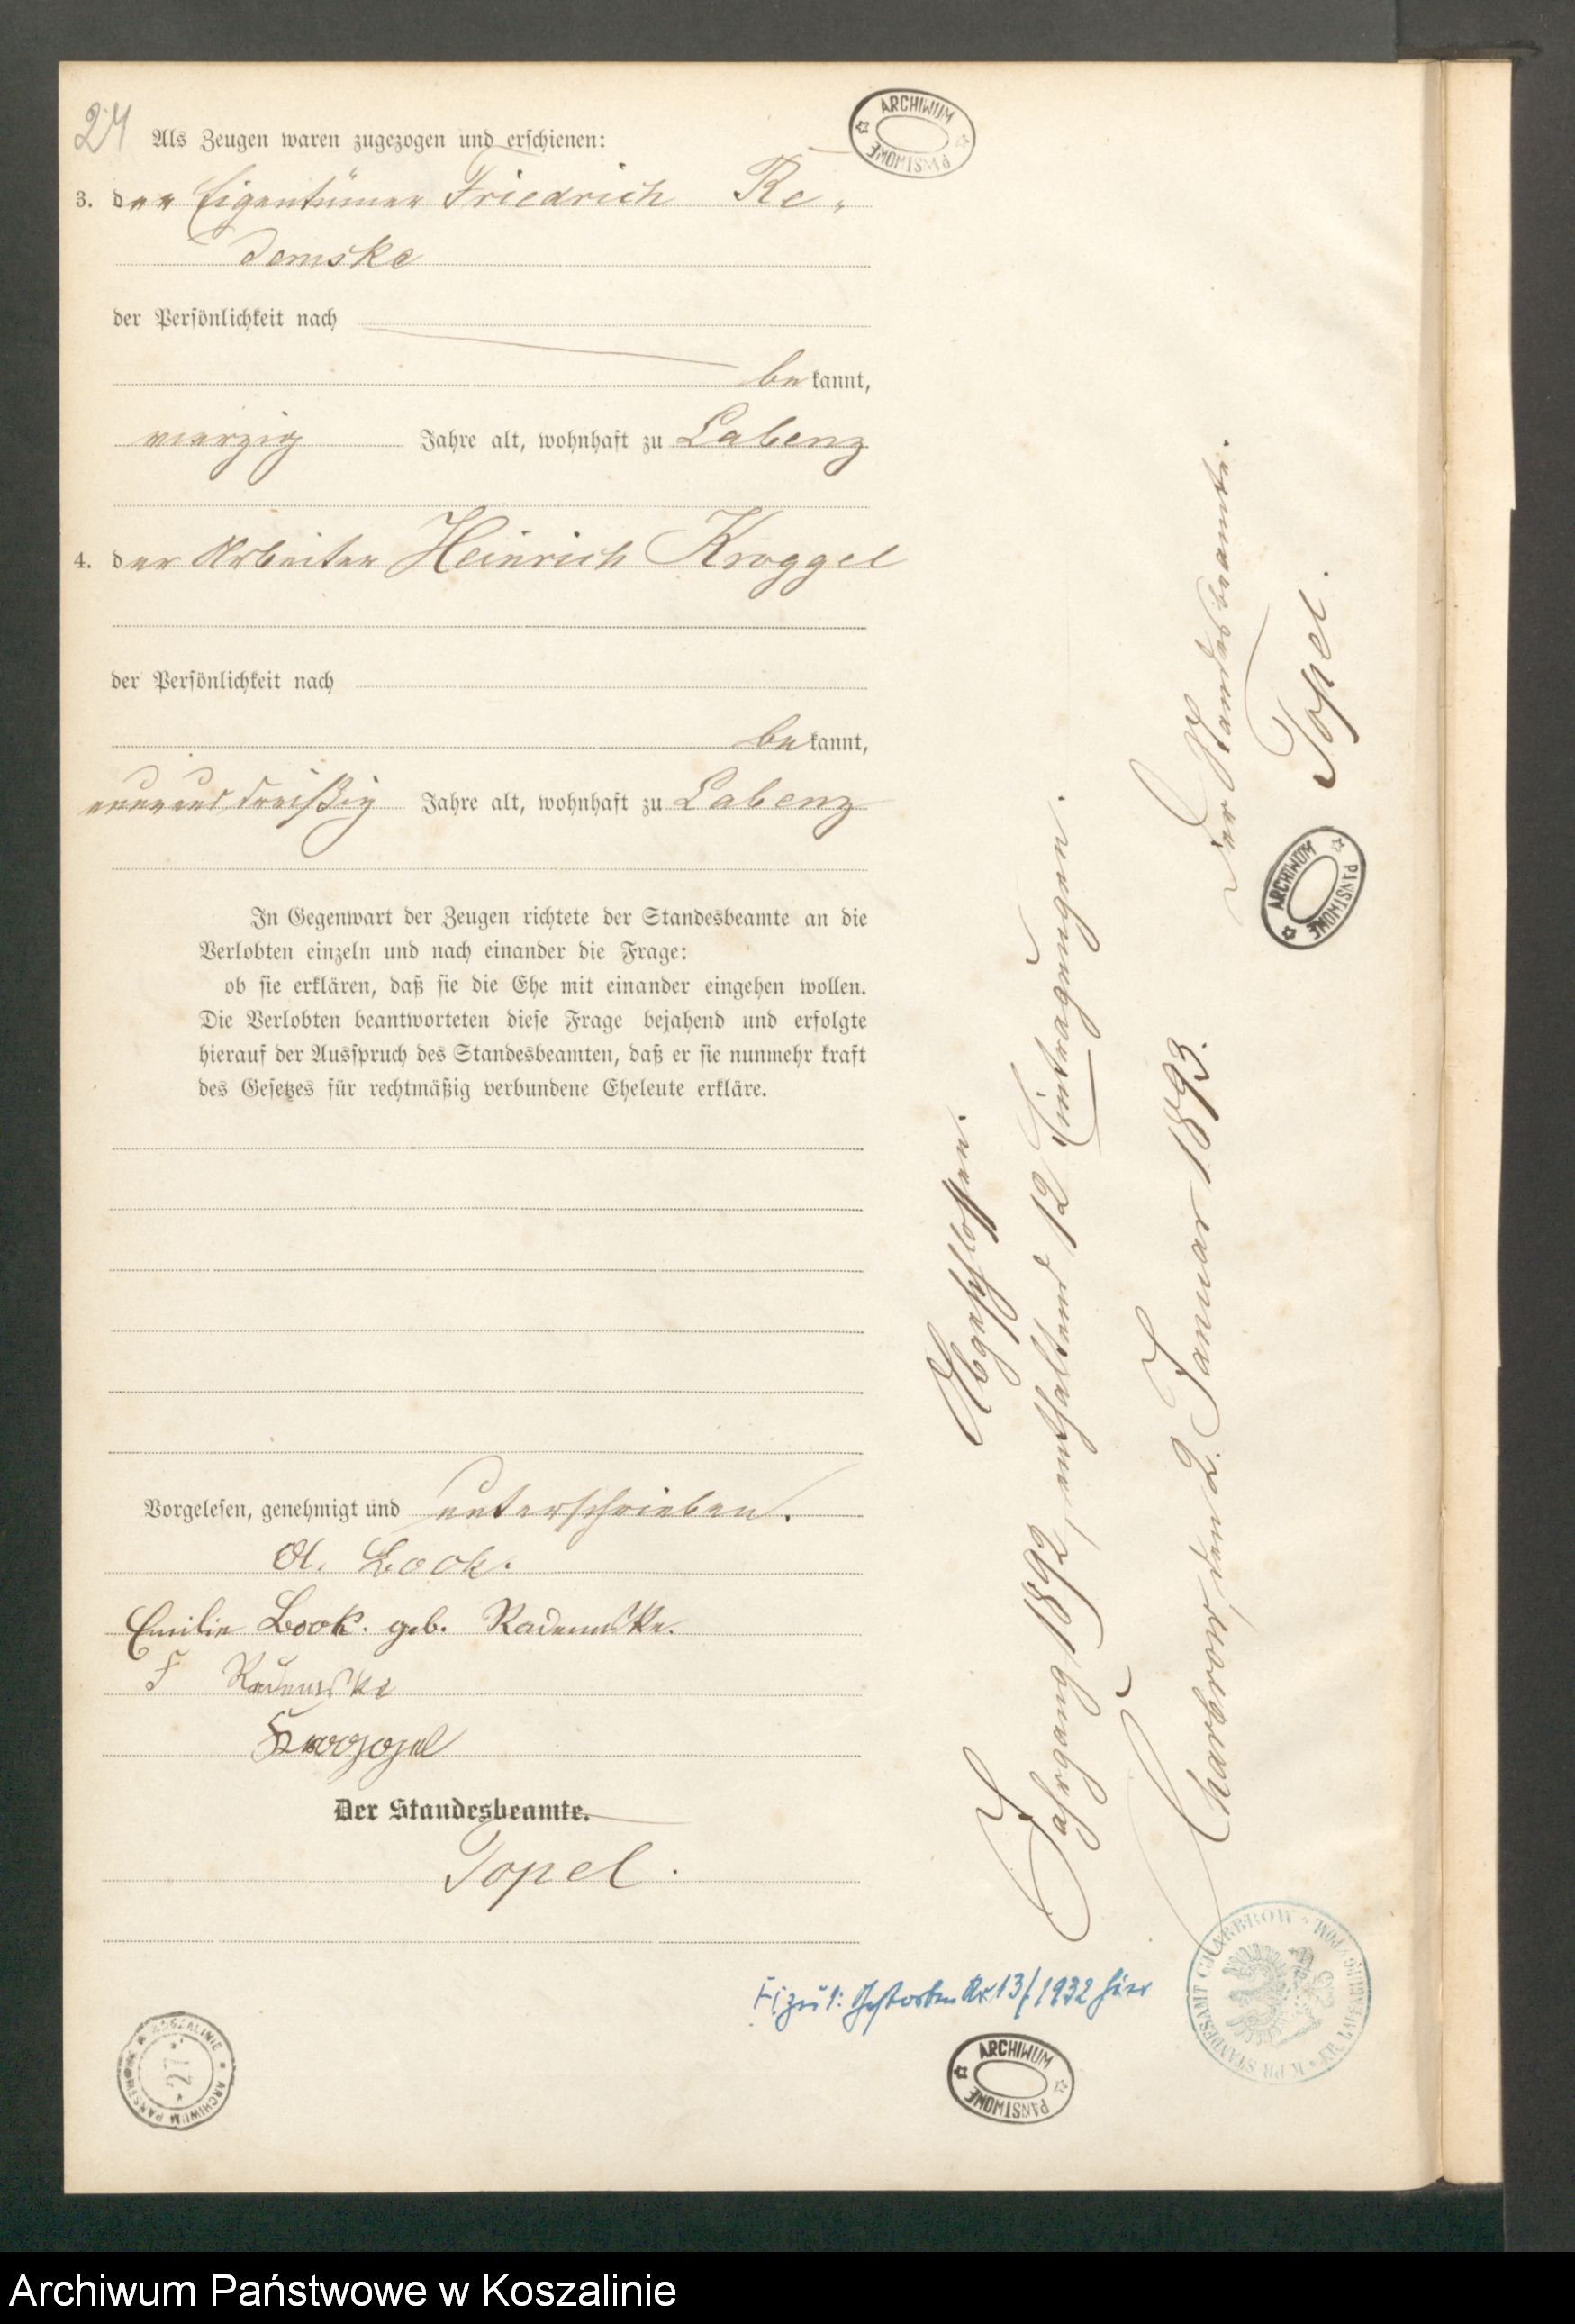 24
Als Zeugen waren zugezogen und erschienen:
3. der Eigentümer Friedrich Re-
demske
der Persönlichkeit nach
bekannt,
vierzig Jahre alt, wohnhaft zu Labenz
4. der Arbeiter Heinrich Kroggel
der Persönlichkeit nach
bekannt,
neununddreißig Jahre alt, wohnhaft zu Labenz
In Gegenwart der Zeugen richtete der Standesbeamte an die
Verlobten einzeln und nach einander die Frage:
ob sie erklären, daß sie die Ehe mit einander eingehen wollen.
Die Verlobten beantworteten diese Frage bejahend und erfolgte
hierauf der Ausspruch des Standesbeamten, daß er sie nunmehr kraft
des Gesetzes für rechtmäßig verbundene Eheleute erkläre.
Vorgelesen, genehmigt und unterschrieben.
A. Book.
Emilie Book. geb. Rademske.
F Rademske
Kroggel
Der Standesbeamte.
Topel.
Abgeschlossen.
Jahrgang 1892, enthaltend 12 Eintragungen.
Charbrow, den 2. Januar 1893.
Der Standesbeamte.
Topel.
gestorben Nr 13/1932 hier
ARCHIWUM PAŃSTWOWE
ARCHIWUM PAŃSTWOWE
ARCHIWUM PAŃSTWOWE
ARCHIWUM PAŃSTWOWE W KOSZALINIE
27
K. PR. STANDESAMT CHARBROW
Archiwum Państwowe w Koszalinie